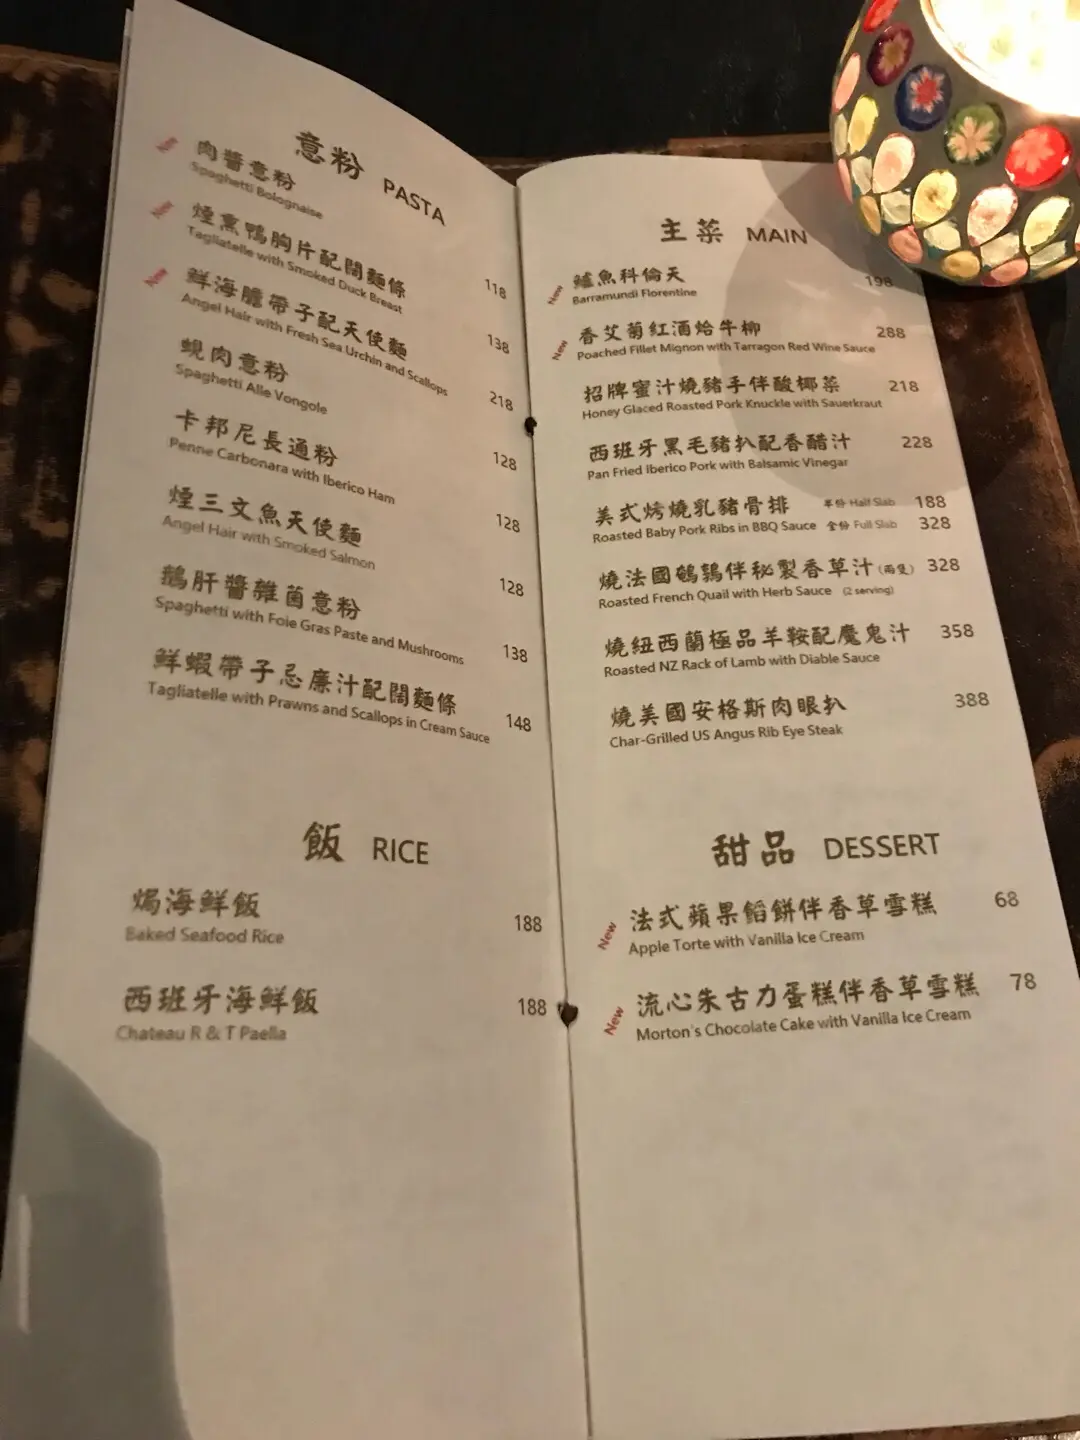 意粉 PASTA
New 肉醬意粉
Spaghetti Bolognaise 118
New 煙熏鴨胸片配闊麵條
Tagliatelle with Smoked Duck Breast 138
New 鮮海膽帶子配天使麵
Angel Hair with Fresh Sea Urchin and Scallops 218
蜆肉意粉
Spaghetti Alle Vongole 128
卡邦尼長通粉
Penne Carbonara with Iberico Ham 128
煙三文魚天使麵
Angel Hair with Smoked Salmon 128
鵝肝醬雜菌意粉
Spaghetti with Foie Gras Paste and Mushrooms 138
鮮蝦帶子忌廉汁配闊麵條
Tagliatelle with Prawns and Scallops in Cream Sauce 148
飯 RICE
焗海鮮飯
Baked Seafood Rice 188
西班牙海鮮飯 188
Chateau R & T Paella
主菜 MAIN
New 鱸魚科倫天 198
Barramundi Florentine
New 香艾菊紅酒烚牛柳 288
Poached Fillet Mignon with Tarragon Red Wine Sauce
招牌蜜汁燒豬手伴酸椰菜 218
Honey Glaced Roasted Pork Knuckle with Sauerkraut
西班牙黑毛豬扒配香醋汁 228
Pan Fried Iberico Pork with Balsamic Vinegar
美式烤燒乳豬骨排 半份 Half Slab 188
Roasted Baby Pork Ribs in BBQ Sauce 全份 Full Slab 328
燒法國鵪鶉伴秘製香草汁 (兩隻) 328
Roasted French Quail with Herb Sauce (2 serving)
燒紐西蘭極品羊鞍配魔鬼汁 358
Roasted NZ Rack of Lamb with Diable Sauce
燒美國安格斯肉眼扒 388
Char-Grilled US Angus Rib Eye Steak
甜品 DESSERT
New 法式蘋果餡餅伴香草雪糕 68
Apple Torte with Vanilla Ice Cream
New 流心朱古力蛋糕伴香草雪糕 78
Morton's Chocolate Cake with Vanilla Ice Cream